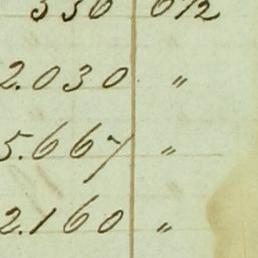 330 6 1/2
2.030 "
5.667 "
2.160 "